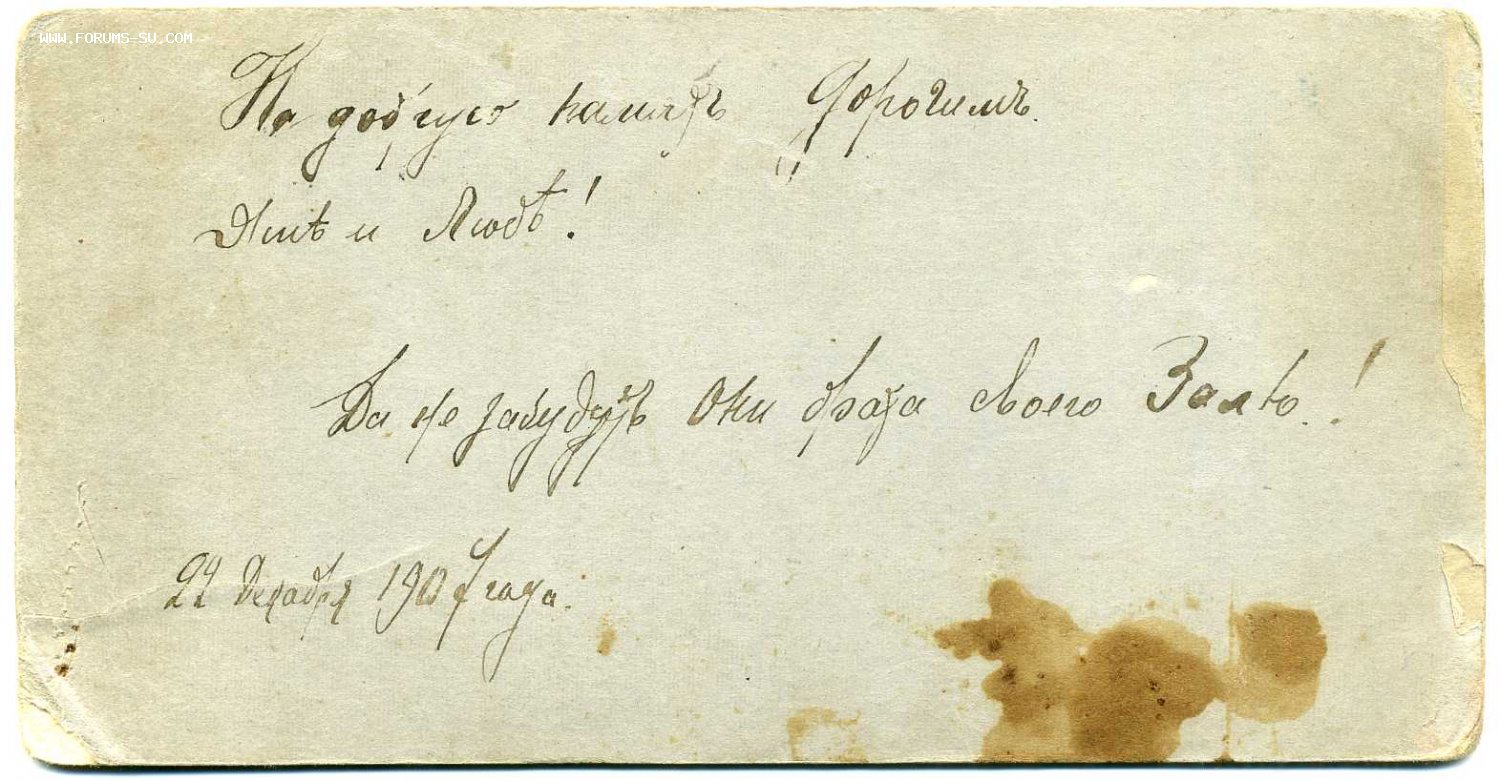 WWW.FORUMS-SU.COM
На добрую память Дорогимъ
и Любѣ!
Да не забудутъ они брата своего
22 Декабря 1907 года.